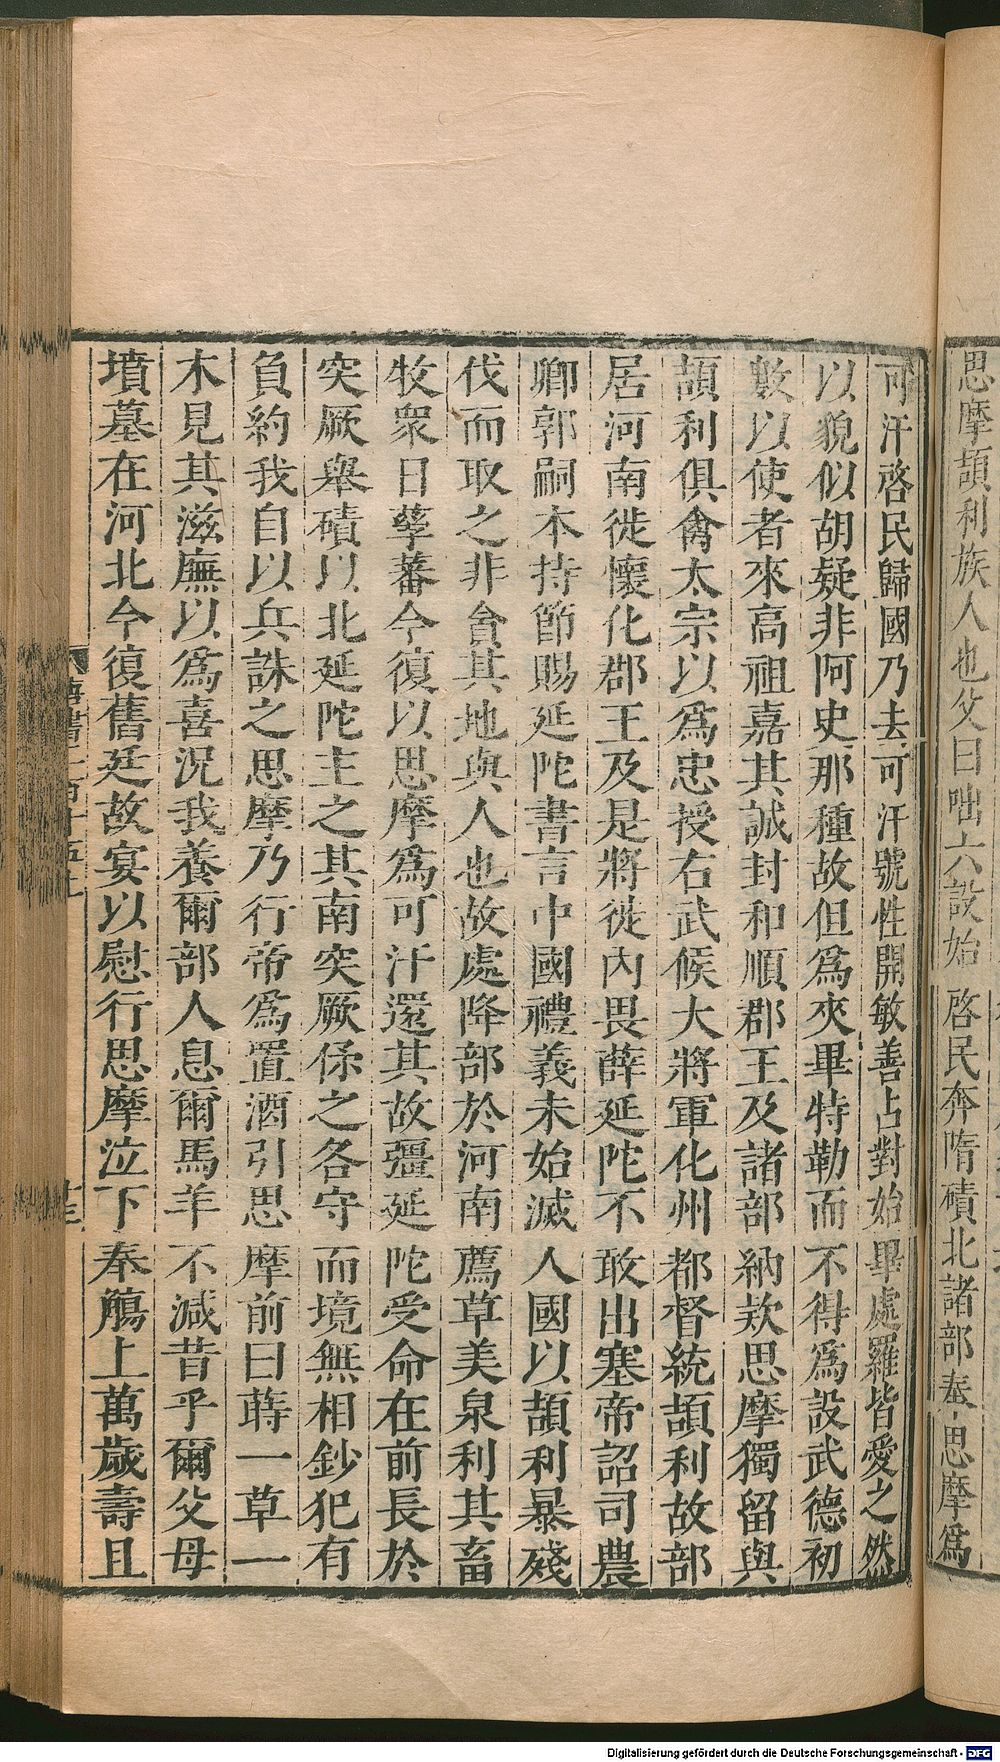 思摩頡利族人也父曰咄六設始啓民奔隋磧北諸部奉思摩爲
可汗啓民歸國乃去可汗號性開敏善占對始畢處羅皆愛之然
以貌似胡疑非阿史那種故但爲夾畢特勒而不得爲設武德初
數以使者來高祖嘉其誠封和順郡王及諸部納欵思摩獨留與
頡利俱禽太宗以爲忠授右武候大將軍化州都督統頡利故部
居河南徙懷化郡王及是將徙內畏薛延陀不敢出塞帝詔司農
卿郭嗣本持節賜延陀書言中國禮義未始滅人國以頡利暴殘
伐而取之非貪其地與人也故處降部於河南薦草美泉利其畜
牧衆日孳蕃今復以思摩爲可汗還其故疆延陀受命在前長於
突厥舉磧以北延陀主之其南突厥保之各守而境無相鈔犯有
負約我自以兵誅之思摩乃行帝爲置酒引思摩前曰蒔一草一
木見其滋廡以爲喜況我養爾部人息爾馬羊不減昔乎爾父母
墳墓在河北今復舊廷故宴以慰行思摩泣下奉觴上萬歲壽且
十三
Digitalisierung gefördert durch die Deutsche Forschungsgemeinschaft - DFG